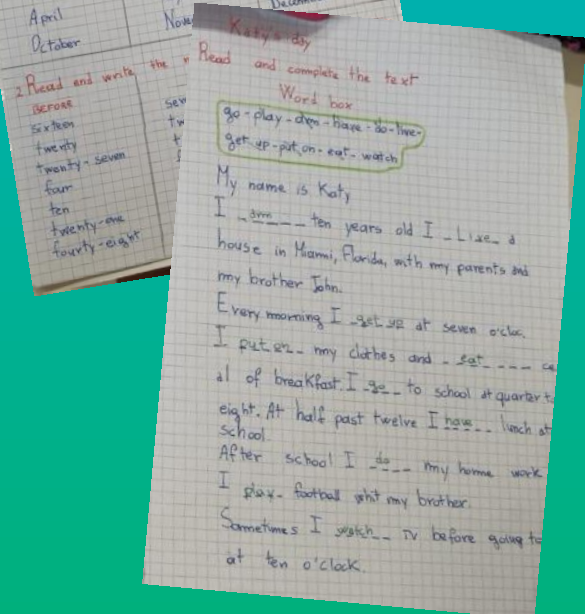 April
October
Nove
Decem
2 Read and write the
BEFORE
sixteen
twenty
twenty-seven
four
ten
twenty-one
fourty-eight
sev
tw
t
Katy's day
Read and complete the text
Word box
go-play-am-have-do-live-
get up-put on-eat-watch
My name is Katy
I _am___ ten years old I _Live_ a
house in Miami, Florida, with my parents and
my brother John.
Every morning I _get up at seven o'cloc.
I put on_ my clothes and _eat____ ce
al of breakfast. I _go__ to school at quarter t
eight. At half past twelve I have__ lunch at
school.
After school I _do___ my home work
I play_ football whit my brother.
Sometimes I watch__ TV before going to
at ten o'clock.